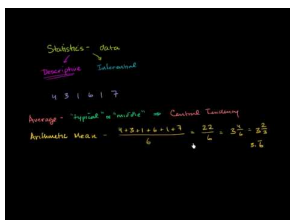 Statistics - data
Descriptive Inferential
4 3 1 6 1 7
Average - "typical" or "middle" → Central Tendency
Arithmetic Mean - 4+3+1+6+1+7 / 6 = 22/6 = 3 4/6 = 3 2/3
3.6̅